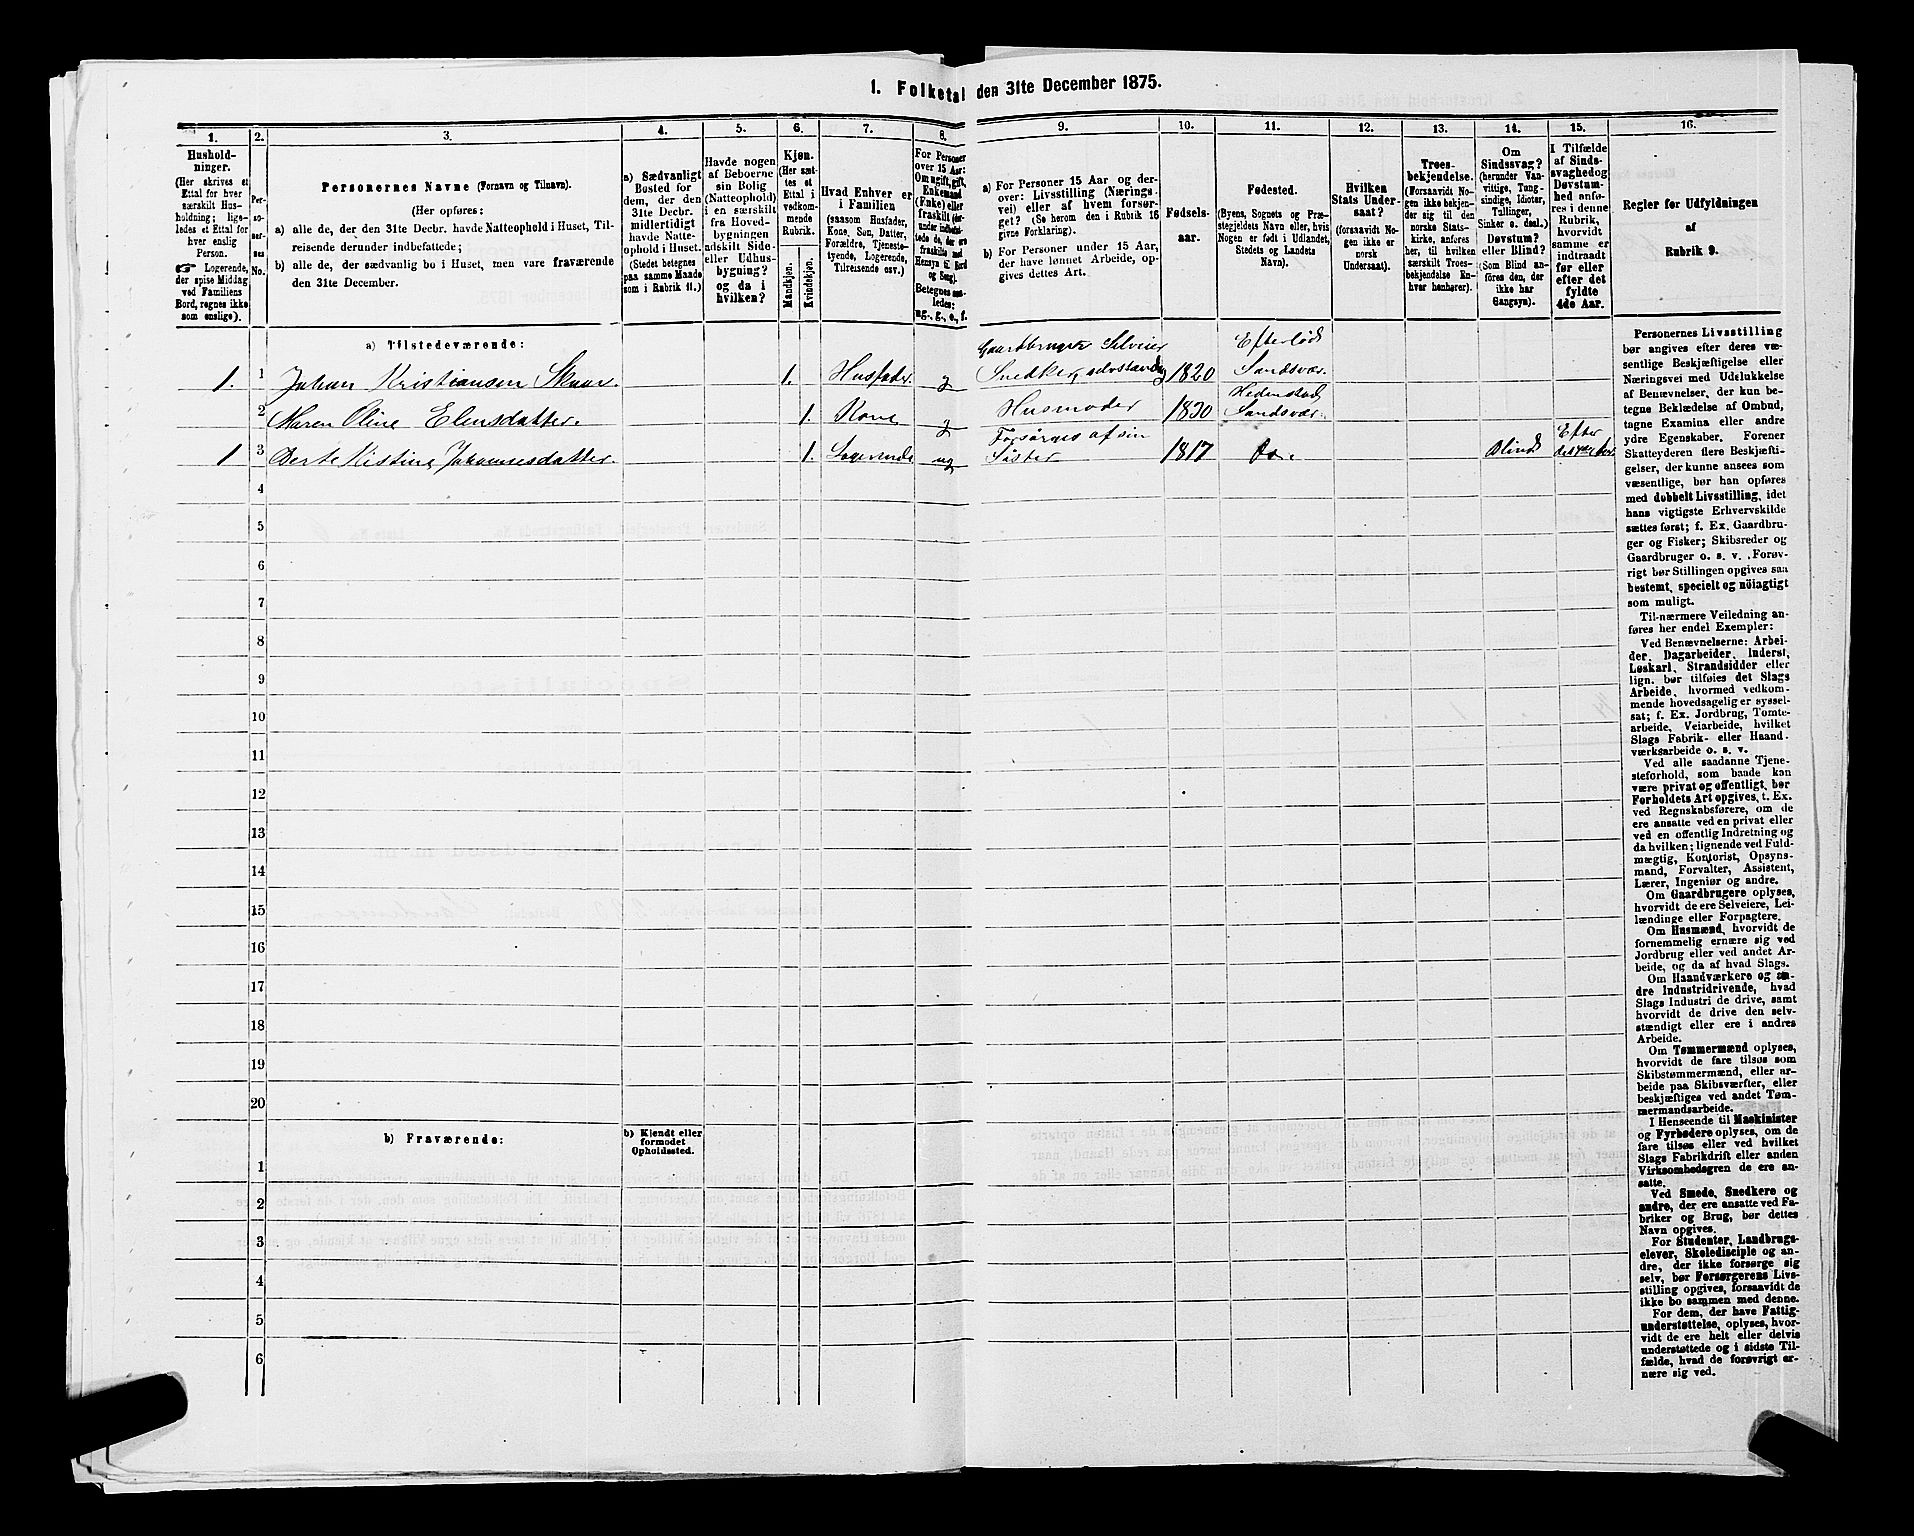 1. Folketal den 31te December 1875.
1.
2.
3.
4.
5.
6.
7.
8.
9.
10.
11.
12.
13.
14.
15.
16.
Hushold-
ninger.
(Her skrives et
Ettal for hver
særskilt Hus-
holdning; lige-
ledes et Ettal for
hver enslig
Person.
☞ Logerende,
der spise Middag
ved Familiens
Bord, regnes ikke
som enslige).
Per-
so-
ner-
nes
No.
Personernes Navne (Fornavn og Tilnavn).
(Her opføres:
a) alle de, der den 31te Decbr. havde Natteophold i Huset, Til-
reisende derunder indbefattede;
b) alle de, der sædvanlig bo i Huset, men vare fraværende
den 31te December.
a) Sædvanligt
Bosted for
dem, der den
31te Decbr.
midlertidigt
havde Natte-
ophold i Huset.
(Stedet betegnes
paa samme Maade
som i Rubrik 11.)
Havde nogen
af Beboerne
sin Bolig
(Natteophold)
i en særskilt
fra Hoved-
bygningen
adskilt Side-
eller Udhus-
bygning?
og da i
hvilken?
Kjøn.
(Her sæt-
tes et
Ettal i
vedkom-
mende
Rubrik.
Mandkjøn.
Kvindekjøn.
Hvad Enhver er
i Familien
(saasom Husfader,
Kone, Søn, Datter,
Forældre, Tjeneste-
tyende, Logerende,
Tilreisende osv.)
For Personer
over 15 Aar:
Om ugift, gift,
Enkemand
(Enke) eller
fraskilt (der-
under indbefat-
tede de, der ere
fraskilte med
Hensyn til Bord
og Seng).
Betegnes saa-
ledes:
ug., g., e., f.
a) For Personer 15 Aar og der-
over: Livsstilling (Nærings-
vei) eller af hvem forsør-
get? (Se herom den i Rubrik 16
givne Forklaring).
b) For Personer under 15 Aar,
der have lønnet Arbeide, op-
gives dettes Art.
Fødsels-
aar.
Fødested.
(Byens, Sognets og Præ-
stegjeldets Navn eller, hvis
Nogen er født i Udlandet,
Stedets og Landets
Navn).
Hvilken
Stats Under-
saat?
(forsaavidt No-
gen ikke er
norsk
Undersaat).
Troes-
bekjendelse.
(Forsaavidt No-
gen ikke bekjen-
der sig til den
norske Stats-
kirke, anføres
her, til hvilken
særskilt Troes-
bekjendelse En-
hver henhører).
Om
Sindssvag?
(herunder Van-
vittige, Tung-
sindige, Idioter,
Tullinger,
Sinker o. desl.)
Døvstum?
eller Blind?
(Som Blind an-
føres den, der
ikke har
Gangsyn).
I Tilfælde
af Sinds-
svaghed og
Døvstum-
hed anfø-
res i denne
Rubrik,
hvorvidt
samme er
indtraadt
før eller
efter det
fyldte
4de Aar.
Regler for Udfyldningen
af
Rubrik 9.
a) Tilstedeværende:
1. 1 Johan Kristiansen Skaar. 1. Husfader. g Gaardbruger Selveier Snedker, selvstændig 1820 Efterløt Sandsvær.
2 Maren Oline Elensdatter. 1. Kone g Husmoder 1830 Hedenstad Sandsvær.
1 3 Berte Kistine Johannesdatter. 1. Logerende ug Forsørges af sin Søster 1817 do. Blind Efter det 4de Aar.
4
5
6
7
8
9
10
11
12
13
14
15
16
17
18
19
20
b) Fraværende:
b) Kjendt eller
formodet
Opholdssted.
1
2
3
4
5
6
Personernes Livsstilling
bør angives efter deres væ-
sentlige Beskjæftigelse eller
Næringsvei med Udelukkelse
af Benævnelser, der kun be-
tegne Beklædelse af Ombud,
tagne Examina eller andre
ydre Egenskaber. Forener
Skatteyderen flere Beskjæfti-
gelser, der kunne ansees som
væsentlige, bør han opføres
med dobbelt Livsstilling, idet
hans vigtigste Erhvervskilde
sættes først; f. Ex. Gaardbru-
ger og Fisker; Skibsreder og
Gaardbruger o. s. v. Forøv-
rigt bør Stillingen opgives saa
bestemt, specielt og nöiagtigt
som muligt.
Til nærmere Veiledning an-
føres her endel Exempler:
Ved Benævnelserne: Arbei-
der, Dagarbeider, Inderst,
Løskarl, Strandsidder eller
lign. bør tilføies det Slags
Arbeide, hvormed vedkom-
mende hovedsagelig er syssel-
sat; f. Ex. Jordbrug, Tomte-
arbeide, Veiarbeide, hvilket
Slags Fabrik- eller Haand-
værksarbeide o. s. v.
Ved alle saadanne Tjene-
steforhold, som baade kan
være privat og offentligt, bør
Forholdets Art opgives, f. Ex.
ved Regnskabsførere, om de
ere ansatte ved en privat eller
ved en offentlig Indretning og
da hvilken; lignende ved Fuld-
mægtig, Kontorist, Opsyns-
mand, Forvalter, Assistent,
Lærer, Ingeniør og andre.
Om Gaardbrugere oplyses,
hvorvidt de ere Selveiere, Lei-
lændinge eller Forpagtere.
Om Husmænd, hvorvidt de
fornemmelig ernære sig ved
Jordbrug eller ved andet Ar-
beide, og da af hvad Slags.
Om Haandværkere og an-
dre Industridrivende, hvad
Slags Industri de drive, samt
hvorvidt de drive den selv-
stændigt eller ere i andres
Arbeide.
Om Tømmermænd oplyses,
hvorvidt de fare tilsøs som
Skibstømmermænd, eller ar-
beide paa Skibsværfter, eller
beskjæftiges ved andet Tøm-
mermandsarbeide.
I Henseende til Maskinister
og Fyrbødere oplyses, om de
fare tilsøs eller ved hvilket
Slags Fabrikdrift eller anden
Virksomhedsgren de ere an-
satte.
Ved Smede, Snedkere og
andre, der ere ansatte ved Fa-
briker og Brug, bør dettes
Navn opgives.
For Studenter, Landbrugs-
elever, Skoledisciple og an-
dre, der ikke forsørge sig
selv, bør Forsørgerens Livs-
stilling opgives, forsaavidt de
ikke bo sammen med denne.
For dem, der have Fattig-
understøttelse, oplyses, hvor-
vidt de ere helt eller delvis
understøttede og i sidste Til-
fælde, hvad de forøvrigt er-
nære sig ved.